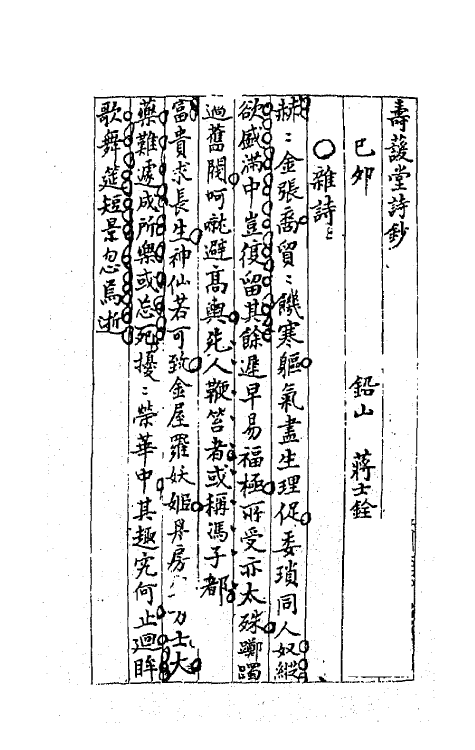 壽萱堂詩鈔
己卯　鉛山　蔣士銓
雜詩
赫〻金張裔貿〻饑寒軀氣盡生理促委瑣同人奴縱
欲盛滿中豈復留其餘遲早易福極所受亦太殊躑躅
過舊閥呵噉避高輿先人鞭笞者或稱馮子都
富貴求長生神仙若可致金屋羅妖姬丹房 方士大
藥難遽成所樂或忘死擾〻榮華中其趣究何止迴眸
歌舞筵短景忽焉逝